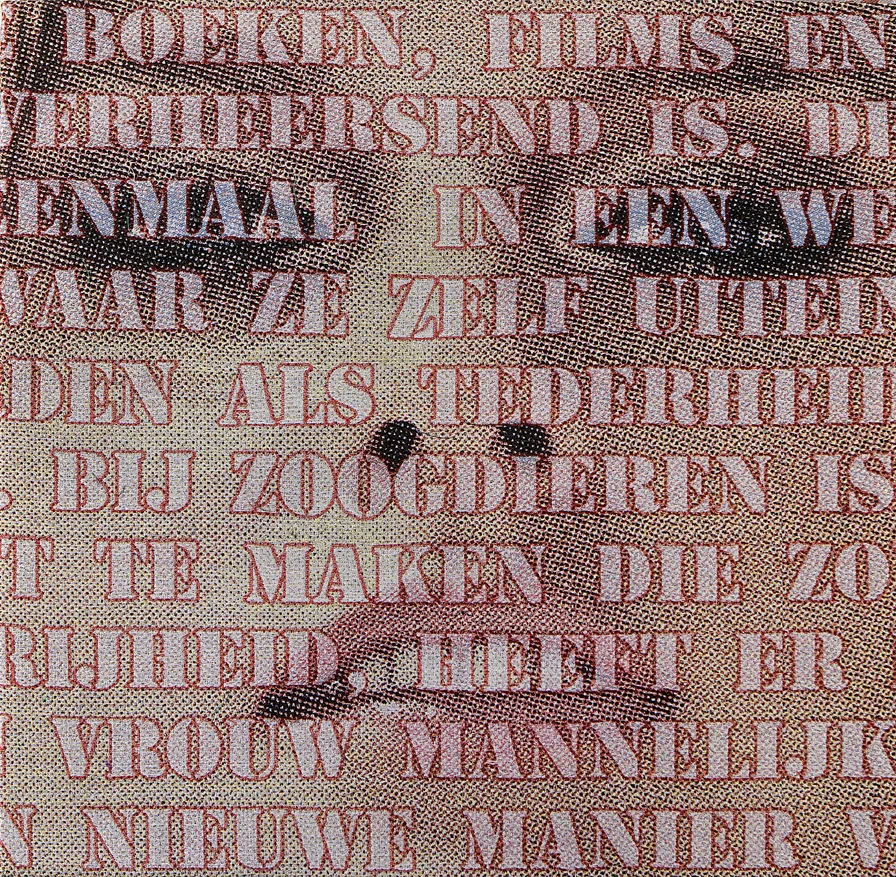 BOEKEN, FILMS EN
VERHEERSEND IS. DE
EENMAAL IN EEN WE
WAAR ZE ZELF UITEIN
DEN ALS TEDERHEI
. BIJ ZOOGDIEREN IS
T TE MAKEN DIE ZO
RIJHEID, HEEFT ER
VROUW MANNELIJK
N NIEUWE MANIER V